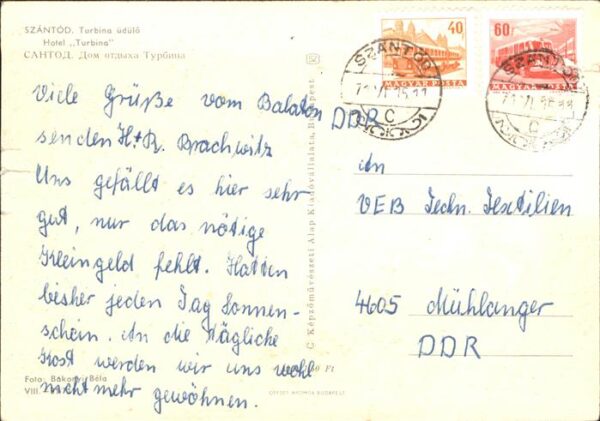 SZÁNTÓD. Turbina üdülő
Hotel „Turbina"
САНТОД. Дом отдыха Турбина
Viele Grüße vom Balaton
senden H+R. Brachwitz
Uns gefällt es hier sehr
gut, nur das nötige
Kleingeld fehlt. Hatten
bisher jeden Tag Sonnen-
schein. An die tägliche
Kost werden wir uns wohl
nicht mehr gewöhnen.
Foto: Bakonyi Béla
VIII.
C. Képzőművészeti Alap Kiadóvállalata, Budapest
Ft
OFFSET
BUDAPEST
40
MAGYAR POSTA
60f
MAGYAR POSTA
SZÁNTÓD
C
SZÁNTÓD
C
DDR
An
VEB Techn. Textilien
4605 Mühlanger
DDR